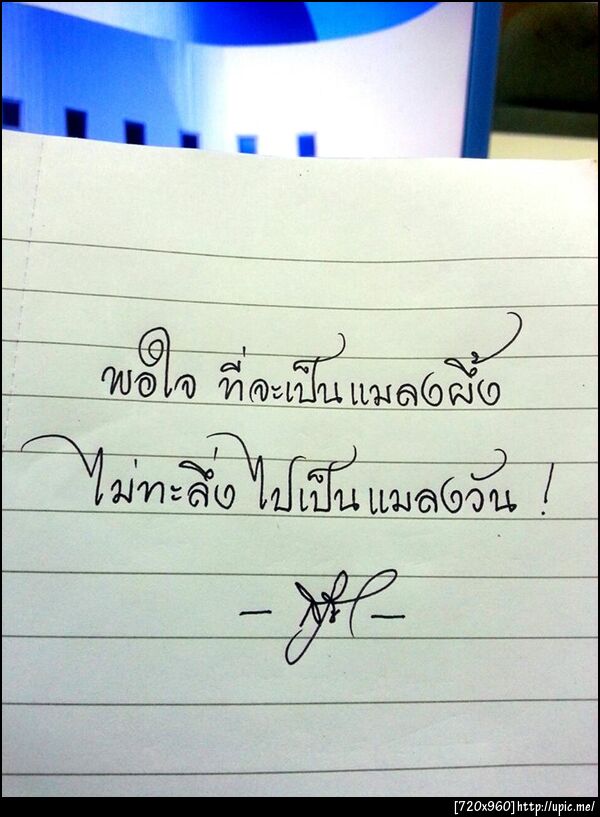 พอใจ ที่จะเป็นแมลงผึ้ง
ไม่ทะลึ่ง ไปเป็นแมลงวัน !
[720x960]http://upic.me/